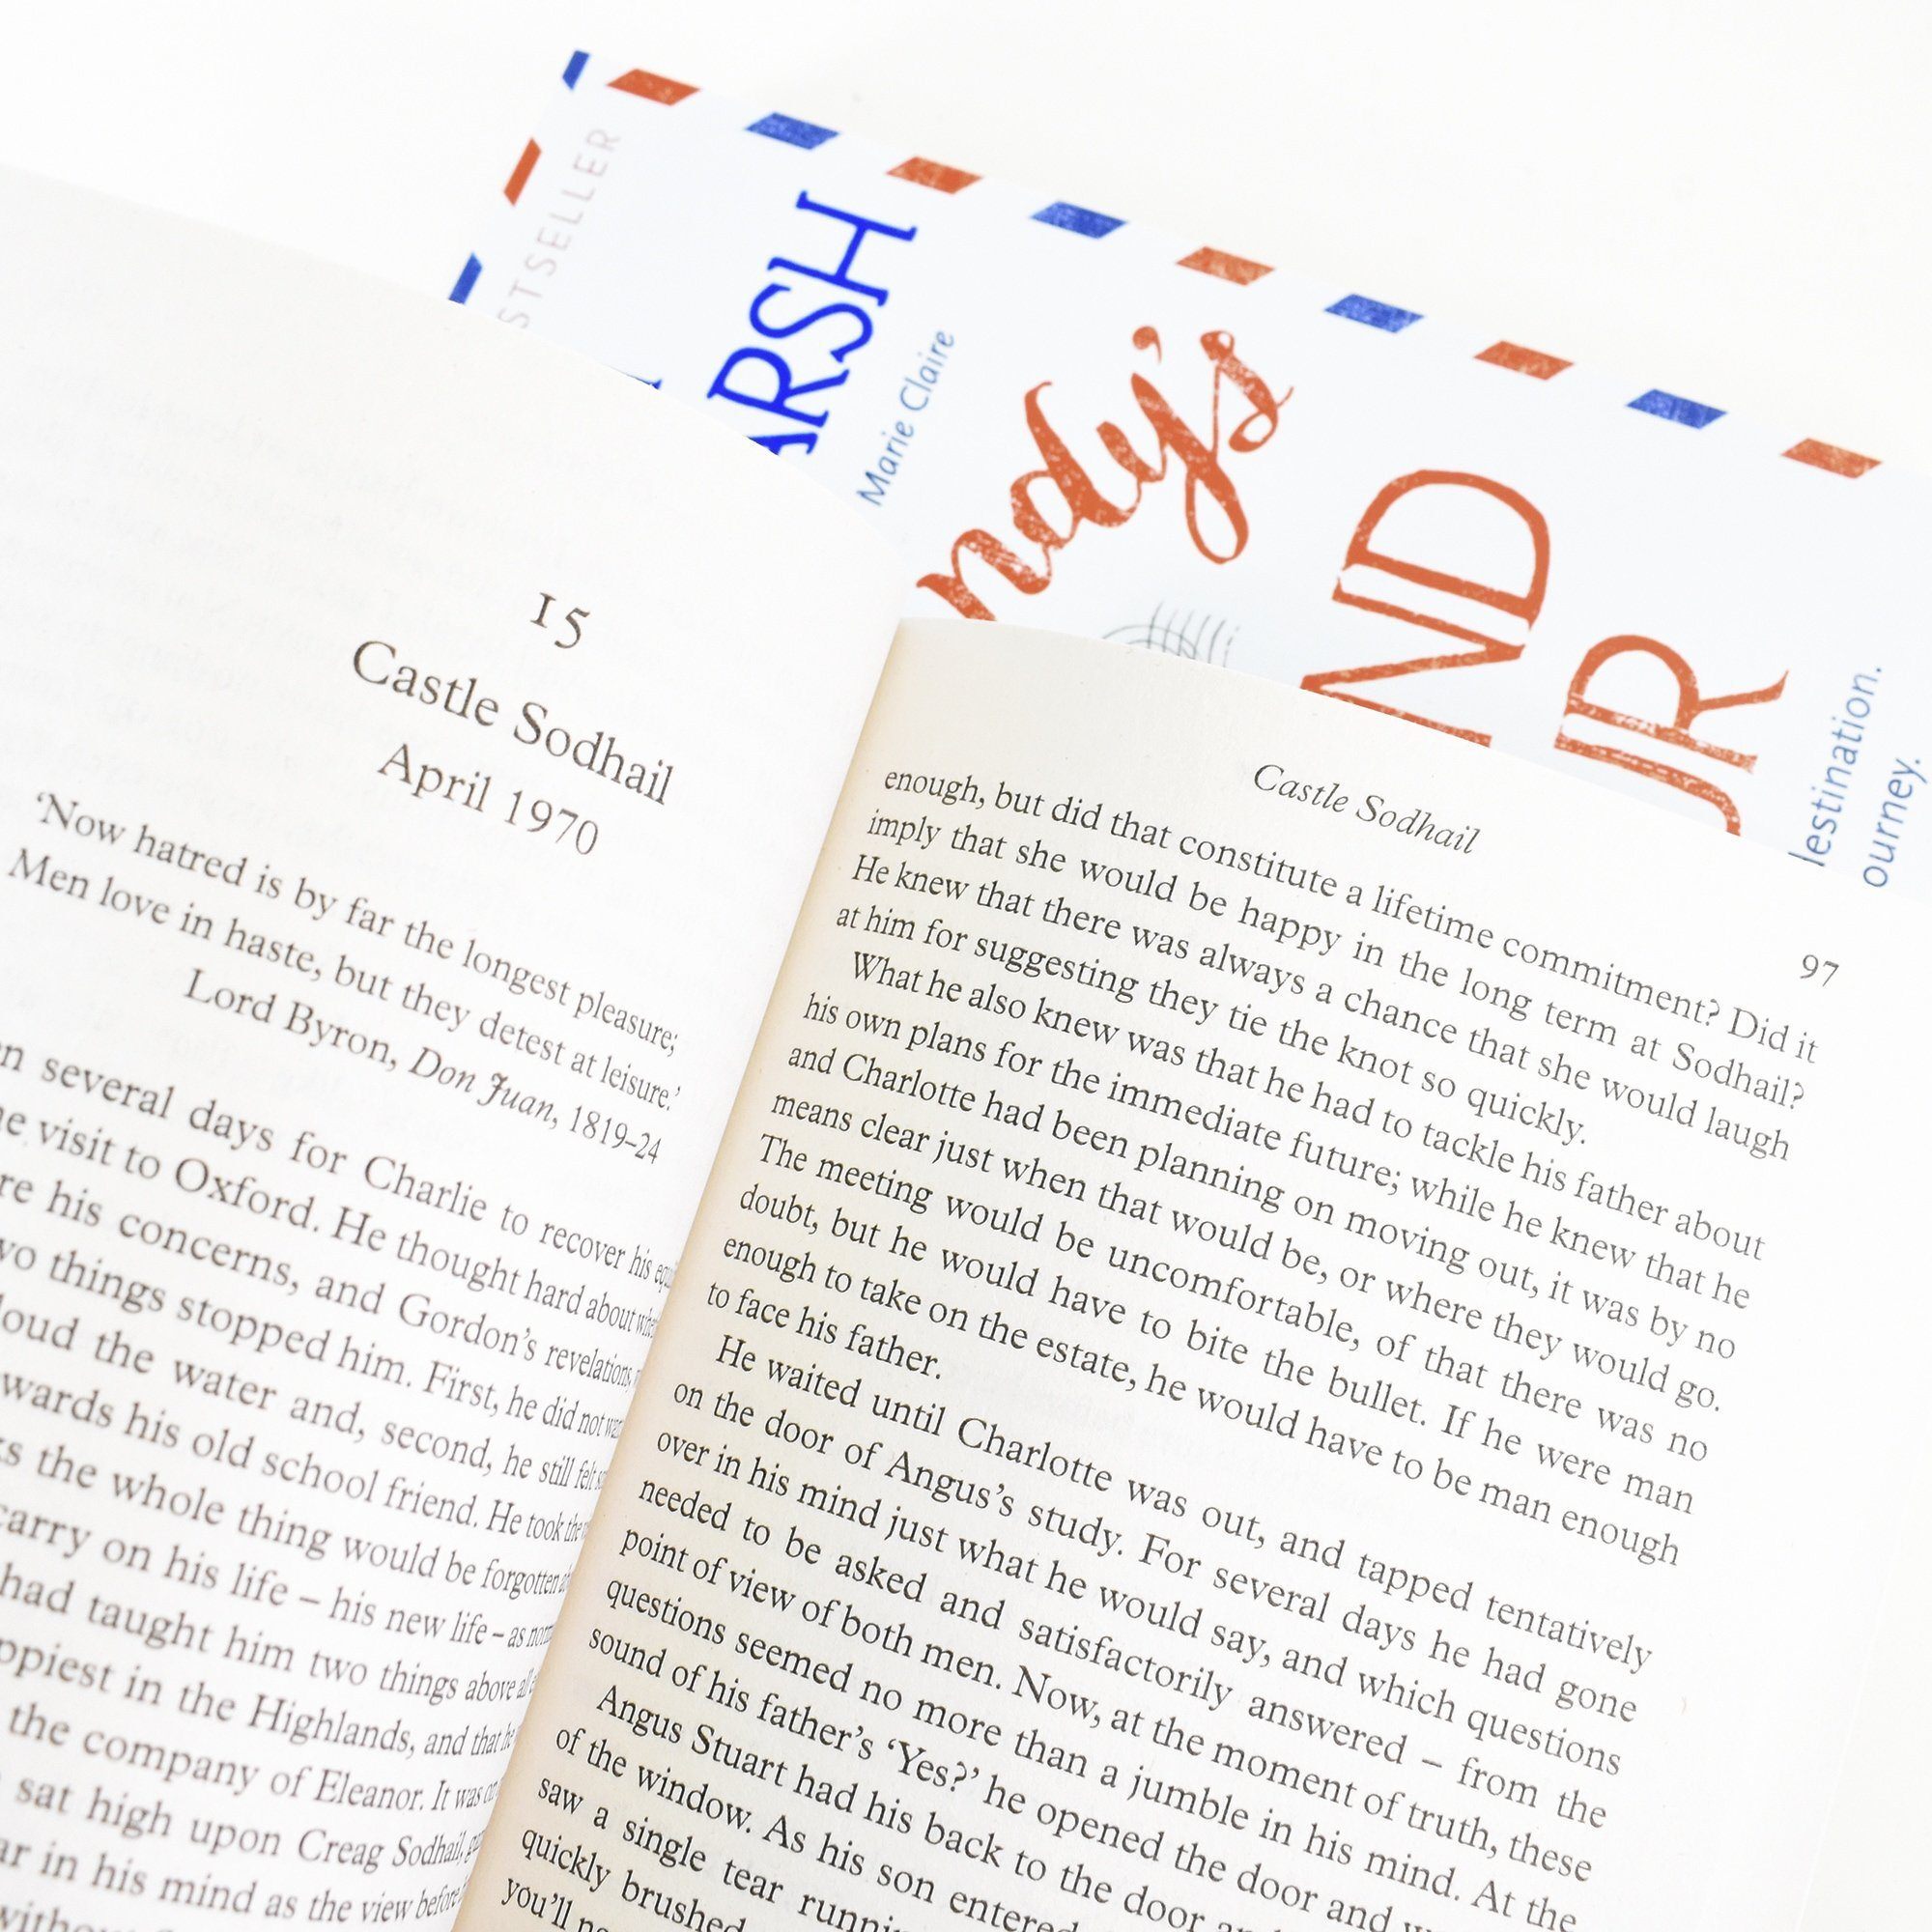 STSELLER
ARSH
Marie Claire
ndy's
ND
UR
destination.
ourney.
15
Castle Sodhail
April 1970
‘Now hatred is by far the longest pleasure;
Men love in haste, but they detest at leisure.’
Lord Byron, Don Juan, 1819–24
several days for Charlie to recover his
visit to Oxford. He thought hard about
his concerns, and Gordon’s revelations,
things stopped him. First, he did not
the water and, second, he still felt
his old school friend. He took the
the whole thing would be forgotten
carry on his life – his new life – as
had taught him two things above all
in the Highlands, and that he
the company of Eleanor. It was
sat high upon Creag Sodhail,
in his mind as the view before
Castle Sodhail
97
enough, but did that constitute a lifetime commitment? Did it
imply that she would be happy in the long term at Sodhail?
He knew that there was always a chance that she would laugh
at him for suggesting they tie the knot so quickly.
What he also knew was that he had to tackle his father about
his own plans for the immediate future; while he knew that he
and Charlotte had been planning on moving out, it was by no
means clear just when that would be, or where they would go.
The meeting would be uncomfortable, of that there was no
doubt, but he would have to bite the bullet. If he were man
enough to take on the estate, he would have to be man enough
to face his father.
He waited until Charlotte was out, and tapped tentatively
on the door of Angus’s study. For several days he had gone
over in his mind just what he would say, and which questions
needed to be asked and satisfactorily answered – from the
point of view of both men. Now, at the moment of truth, these
questions seemed no more than a jumble in his mind. At the
sound of his father’s ‘Yes?’ he opened the door and
Angus Stuart had his back to the door
of the window. As his son entered
saw a single tear
quickly brushed
you’ll